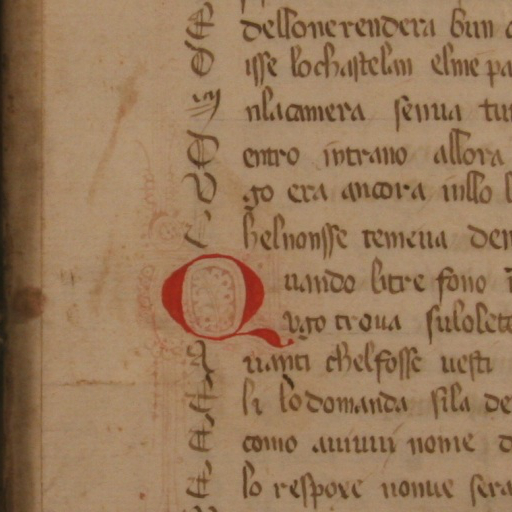 dessone rendera bun
isse lo chastelan elme pa
nla camera senua tu
entro intrano allora
go era ancora insso l
helnonsse temeua den
Quando li tre fono
vgo troua suloleto
uanti chelfosse uesti
li lo domanda sila de
como auiuu nome d
lo respoxe nonue sera